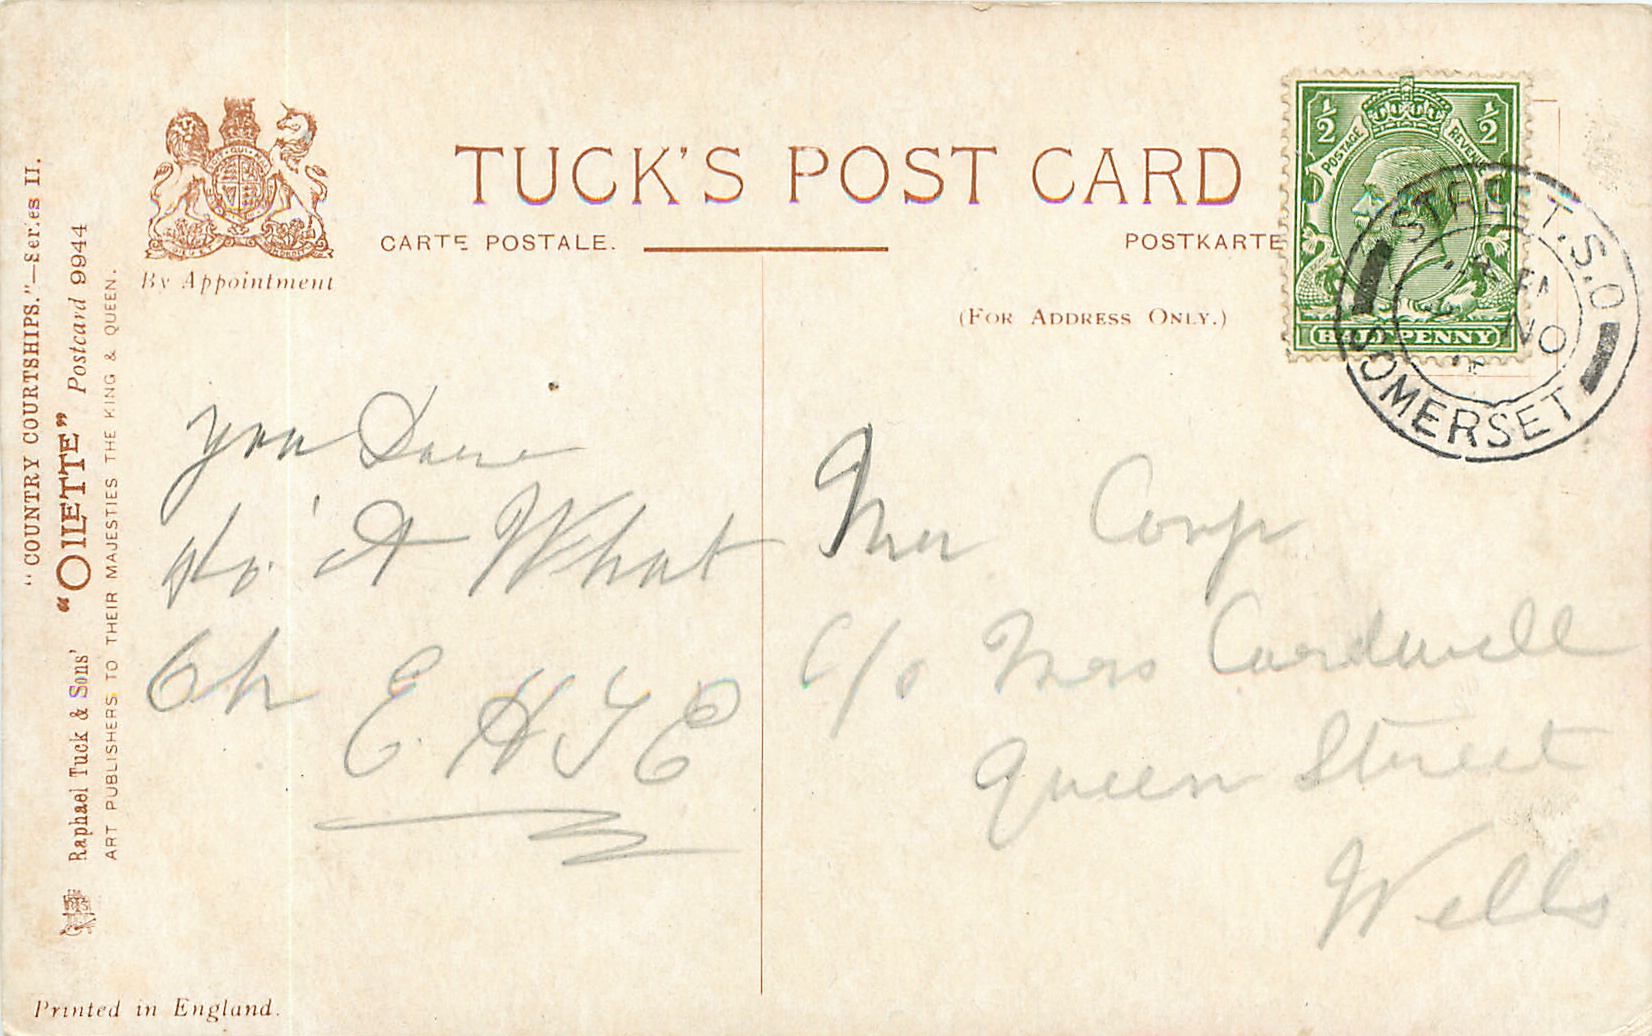 TUCK'S POST CARD
CARTE POSTALE.
POSTKARTE
(FOR ADDRESS ONLY.)
By Appointment
"COUNTRY COURTSHIPS."—Series II.
Raphael Tuck & Sons' "OILETTE" Postcard 9944
ART PUBLISHERS TO THEIR MAJESTIES THE KING & QUEEN.
Printed in England.
1/2 1/2
POSTAGE REVENUE
HALFPENNY
STREET. S.O
NO
SOMERSET
you Dare
A What
Oh
E. H
Corp
c/o Mrs Cardwell
Queen Street
Wells